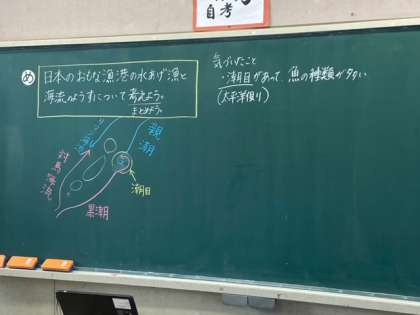 自考
め
日本のおもな漁港の水あげ漁と
海流のようすについて考えよう。
まとめよう。
気づいたこと
・潮目があって、魚の種類が多い
(太平洋側り)
親潮
対馬海流
潮目
黒潮